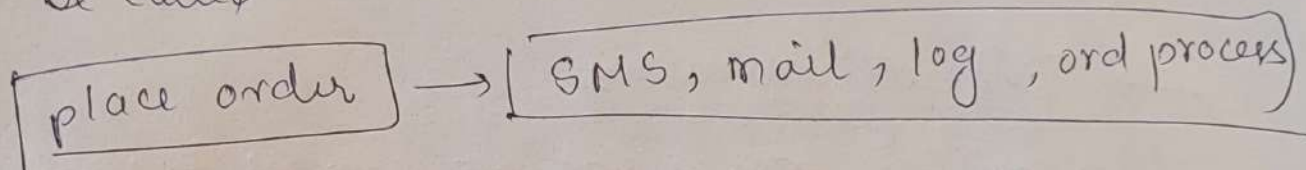 place order → SMS, mail, log, ord process